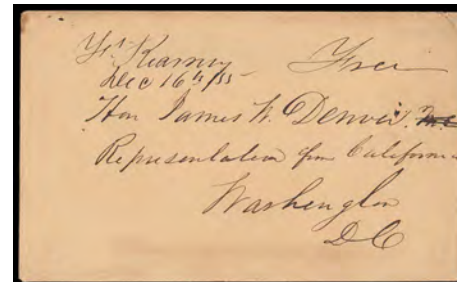 Ft Kearny Free
Dec 16th/55
Hon James W. Denver.
Representative from California
Washington
DC